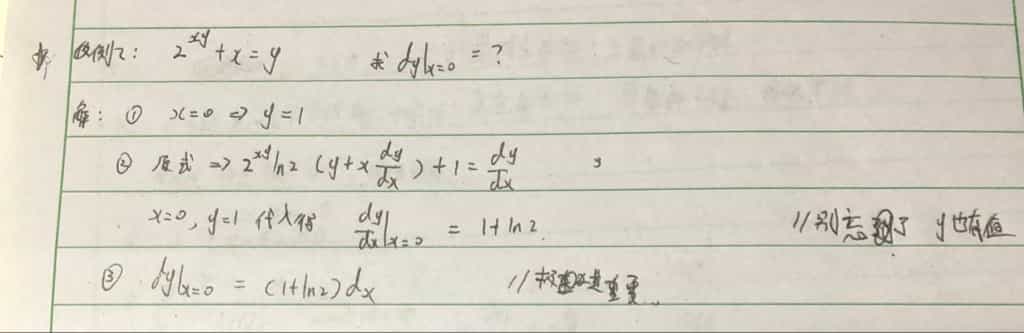 例2: 2^{xy}+x=y 求 dy|x=0 = ?
解: ① x=0 ⇒ y=1
② 原式 ⇒ 2^{xy}ln2 (y+x dy/dx)+1= dy/dx
x=0, y=1 代入得 dy/dx|x=0 = 1+ln2. //别忘了 y也有值
③ dy|x=0 = (1+ln2)dx // 重要